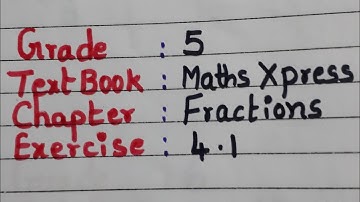 Grade : 5
Text Book : Maths Xpress
Chapter : Fractions
Exercise : 4.1